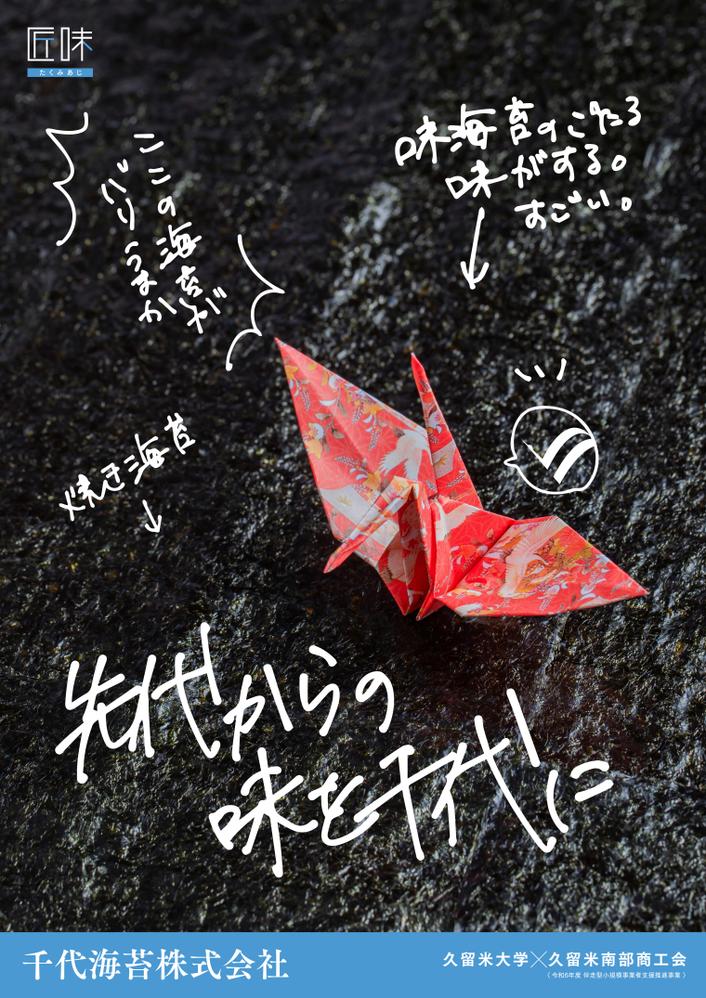 匠味
たくみあじ
ここの海苔が
バリうまか
味海苔のごたる
味がする。
すごい。
焼き海苔
先代からの
味を千代に
千代海苔株式会社
久留米大学×久留米南部商工会
（令和6年度 伴走型小規模事業者支援推進事業）